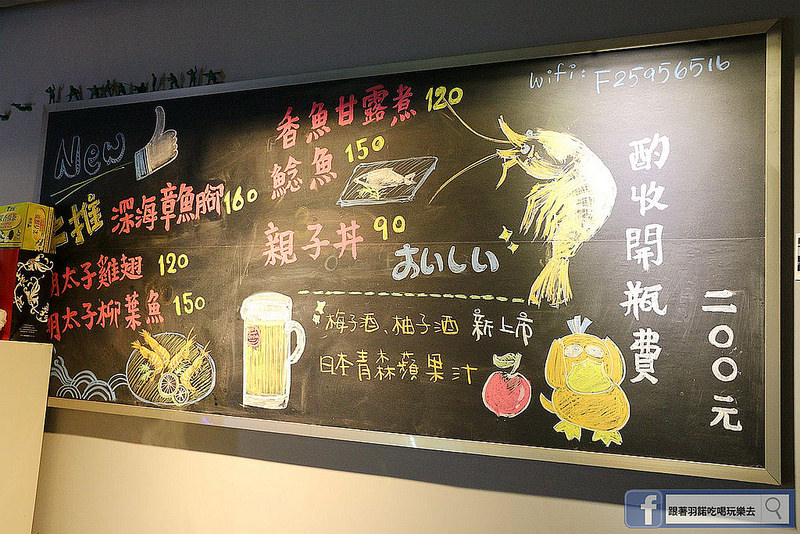 New
推
深海章魚腳 160
明太子雞翅 120
明太子柳葉魚 150
香魚甘露煮 120
鯰魚 150
親子丼 90
おいしい
梅子酒、柚子酒 新上市
日本青森蘋果汁
wifi: F25956516
酌收開瓶費
二〇〇元
跟著羽諾吃喝玩樂去